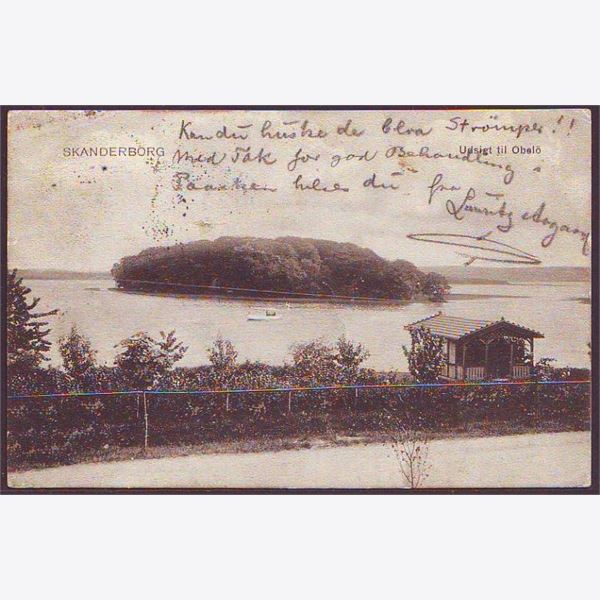 Kan du huske de blva Strömper!!
SKANDERBORG
Med Tak for god Behandling
Udsigt til Obelö
hilses du fra
Lauritz Aagaard